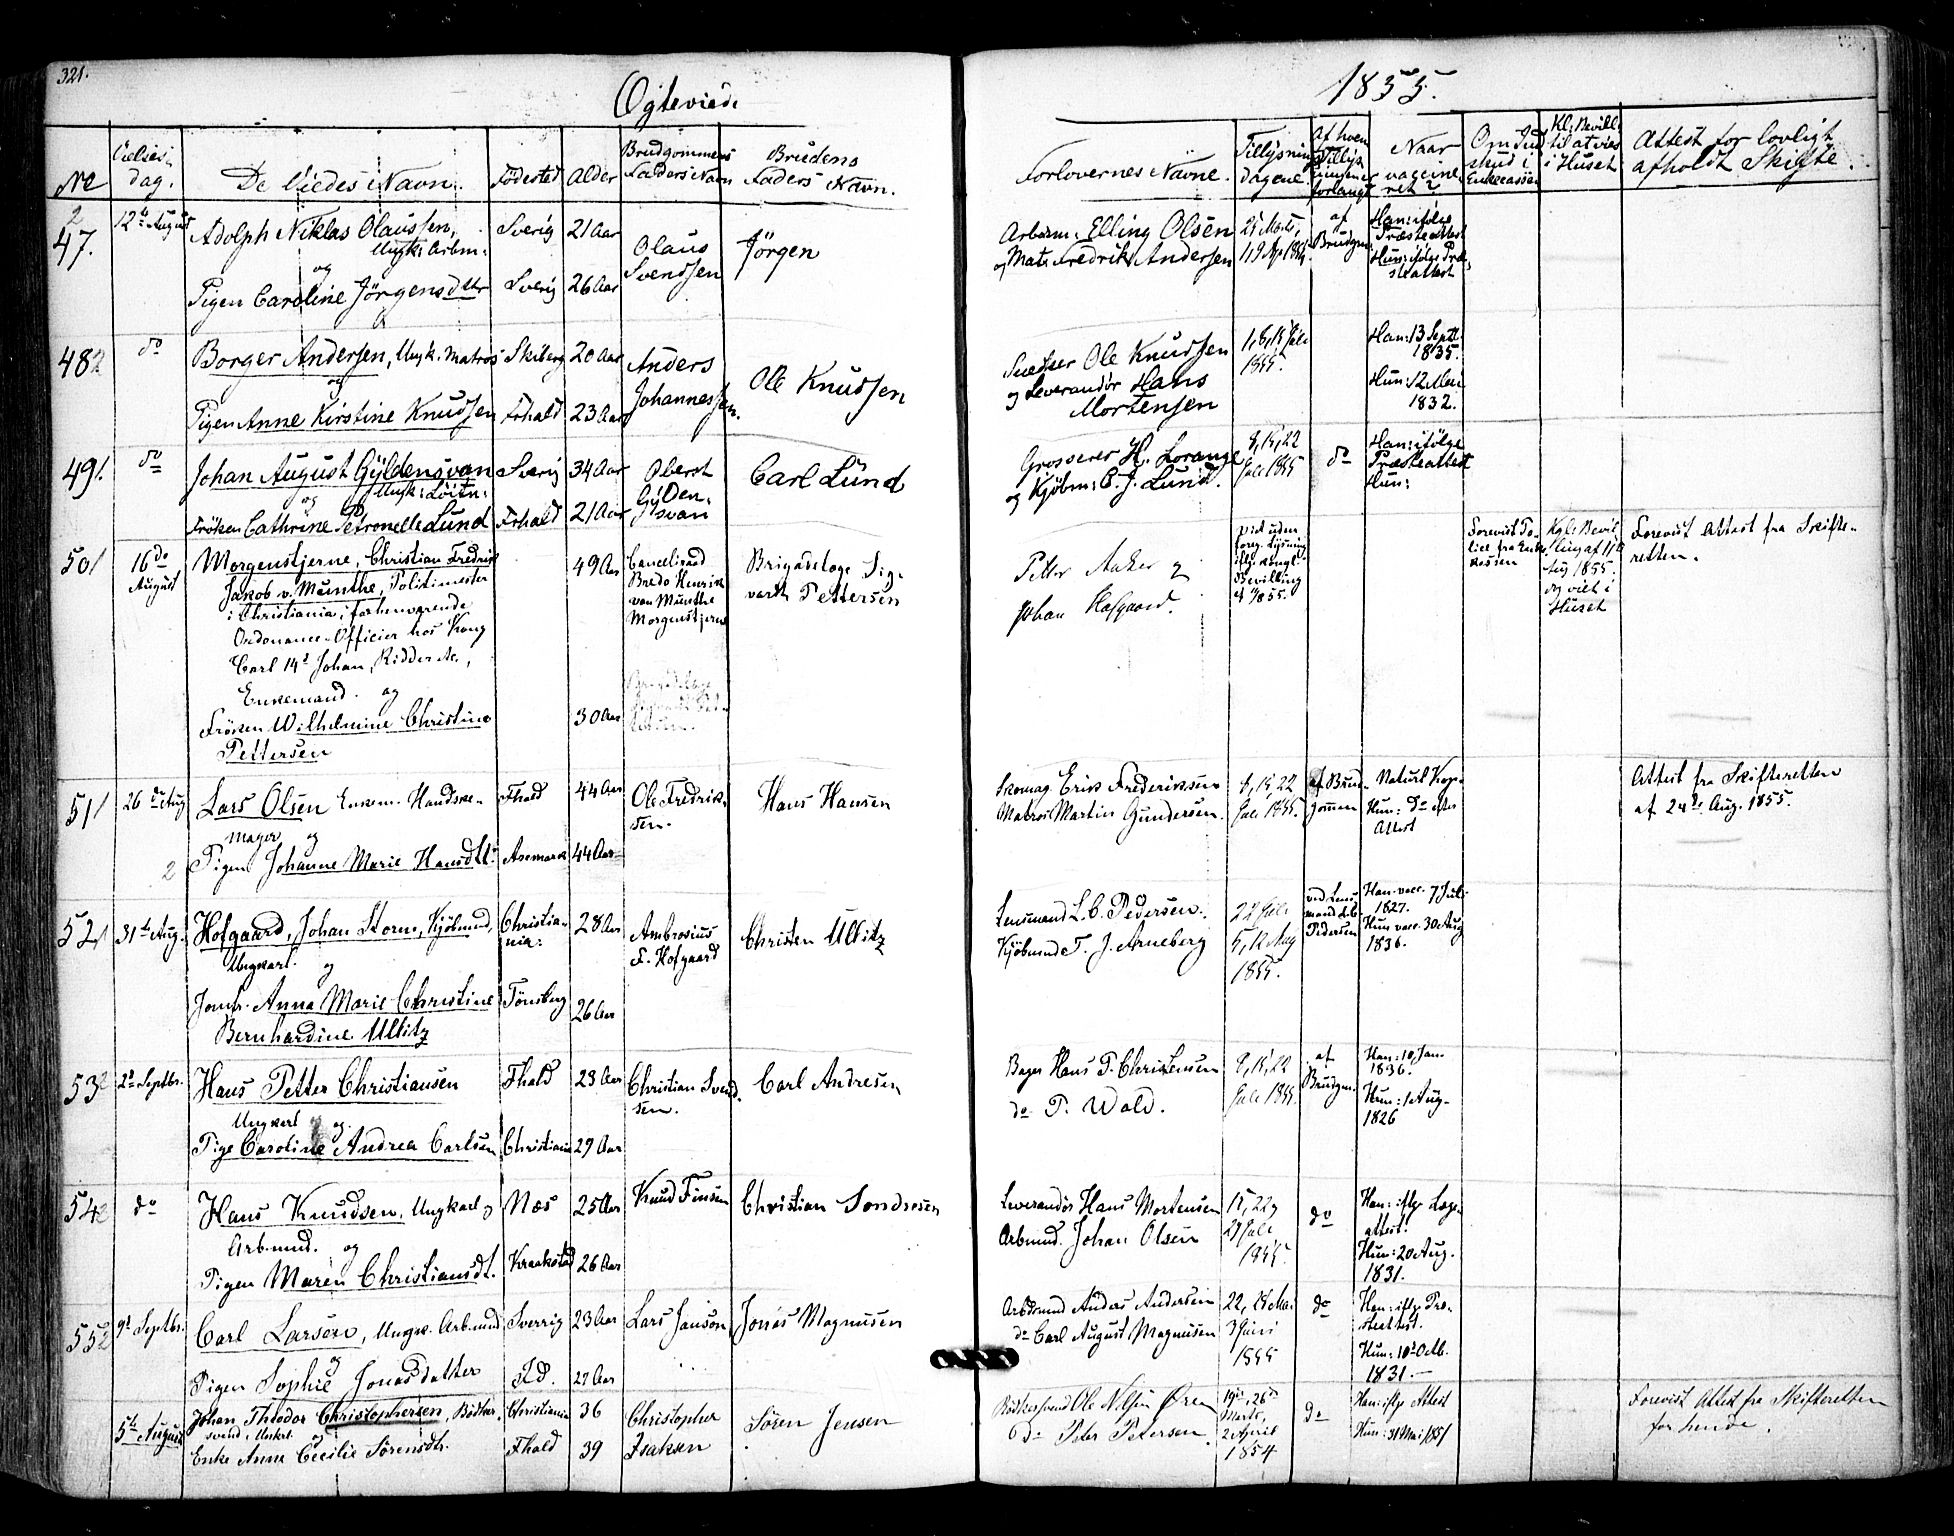 321.
Ogteviede
1855.
No
Vielses-
dag.
De Viedes Navn.
Födested
Alder
Brudgommens
Faders Navn
Brudens
Faders Navn.
Forlovernes Navne.
Tillysnings
dagene.
Af hvem
Tillys
ningen er
forlangt
Naar
vaccine-
ret?
Om Ind
skud i
Enkecassen
Kl: Bevill:
til at vies
i Huset
Attest for lovligt
afholdt Skifte.
2
47.
12te August
Adolph Niklas Olaussen,
Ungk: Arbm:
og
Pigen Caroline Jörgensdttr
Sverig
Sverig
21 Aar
26 Aar
Olaus
Svendsen
Jörgen
Arbdsm: Elling Olsen
og Mats Fredrik Andersen
af
Brudgm:
Han: ifölge
Præsteattest
Hun: ifölge Præ-
steattest
482
do
Borger Andersen, Ungk. Matros
og
Pigen Anne Kirstine Knudsen
Skiberg
Frhald
20 Aar
23 Aar
Anders
Johannessen.
Ole Knudsen
Snedker Ole Knudsen
og Leverandör Hans
Mortensen
1, 8, 15 Juli
1855.
Han: 13 Septb.
1835.
Hun: 12 Mai
1832.
491.
do
Johan August Gyldensvan
Ungk: Löitn:
og
Fröken Cathrine Petronelle Lund
Sverig
Frhald
34 Aar
21 Aar
Oberst
Gylden-
svan
Carl Lund
Grosserer H. Lorange
og Kjöbm: C. J. Lund.
8, 15, 22
Juli 1855
do
Han: ifölge
Præsteattest
Hun:
501
16de
August
Morgenstjerne, Christian Fredrik
Jakob v. Munthe, Politimester
i Christiania, forhenværende
Ordonance-Officier hos Kong
Carl 14de Johan, Ridder etc.,
Enkemand. og
Fröken Wilhelmine Christine
Pettersen
49 Aar
30 Aar
Cancelliraad
Bredo Henrik
van Munthe
Morgenstjerne
Brigadelæge Sig-
vart Pettersen
Petter Anker og
Johan Hofgaard.
viet uden
foreg. Lysning
iflg. kongl.
Bevilling
af 11/8 55.
Forevist Po-
lice fra Enke-
kassen
Kgl: Bevil-
ling af 11te
Aug 1855.
og viet i
Huset
Forevist Attest fra Skifte-
retten.
511
26de Aug
Lars Olsen Enkem. Handske-
mager og
2
Pigen Johanne Marie Hansdttr
Fhald
Aremark
44 Aar
44 Aar
Ole Fredrik-
sen.
Hans Hansen
Skomag. Erik Frederiksen
Matros Martin Gundersen.
8, 15, 22
Juli 1855.
af Brud-
gommen
Naturl. Kop.
Hun: do efter
Attest
Attest fra Skifteretten
af 24de Aug. 1855.
521
31te Aug.
Hofgaard, Johan Storm, Kjöbmd,
Ungkarl. og
Jomfr. Anna Marie Christine
Bernhardine Ullitz
Christia-
nia:
Tönsberg
28 Aar
26 Aar
Ambrosius
F. Hofgaard
Christen Ullitz
Lensmand L. C. Pedersen.
Kjöbmnd T. J. Arneberg
Juli,
5, 12 Aug
1855.
ved Lens-
mand L. C.
Pedersen
Han vacc. 7 Juli
1827.
Hun vacc. 30 Aug
1836.
532
2de Septbr.
Hans Petter Christiansen
Ungkarl og
Pige Caroline Andrea Carlsen
Fhald
Christiania
23 Aar
29 Aar
Christian Svend-
sen.
Carl Andresen
Bager Hans P. Christensen
do P. Wold.
8, 15, 22
Juli 1855
af
Brudgm.
Han: 10 Jan.
1836.
Hun: 1 Aug-
1826
542
do
Hans Knudsen, Ungkarl og
Arb.mnd. og
Pigen Maren Christiansdt.
Næs
Kraakstad
25 Aar
26 Aar
Knud Finsen
Christian Sondresen
Leverandör Hans Mortensen
Arbmnd. Johan Olsen
15, 22,
29 Juli
1855.
do
Han: iflge Læge-
attest.
Hun: 20 Aug.
1831.
552
9de Septbr.
Carl Larsen, Ungk. Arbmnd
og
Pigen Sophie Jonasdatter
Sverrig
Id.
23 Aar
27 Aar
Lars Janson
Jonas Magnusen
Arbdsmnd Anders Andersen
do Carl August Magnusen
22, 28 Mai
3 Juni
1855
do
Han: iflge Præ-
steattest.
Hun: 10de Octb.
1831.-
5te August
Johan Theodor Christophersen, Bödker-
svend, Unkrl.
og
Enke Anne Cecilie Sörensdtr.
Christiania
Fhald
36
39
Christopher
Isaksen
Sören Jensen
Bödkersvend Ole Nilsen Ören
do Peter Petersen
19de, 26de
Marts,
2 April
1854
do
Han: iflge Attest
Hun: 31 Mai 1851
Forevist Attest fra Skifteretten
for hende.